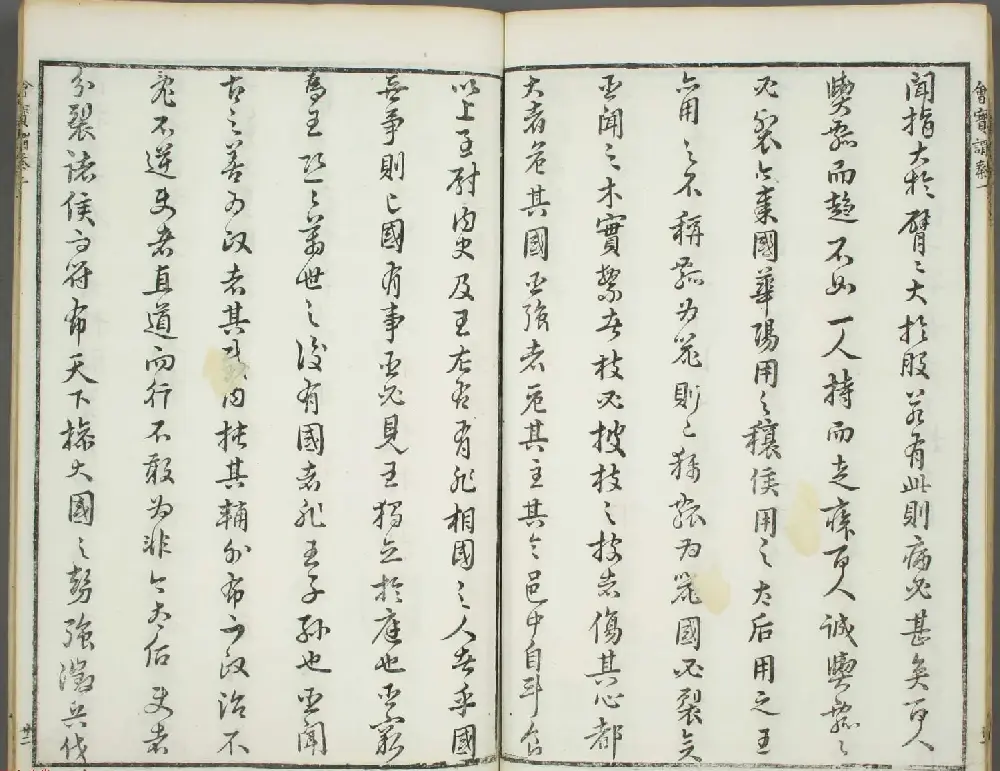 聞指大於臂〻大於股若有此則病必甚矣百人
輿瓢而趨不如一人持而走疾百人誠輿瓢〻
必裂今秦國華陽用之穰侯用之太后用之王
亦用之不稱瓢為器則已稱瓢為器國必裂矣
臣聞之木實繁者枝必披枝之披者傷其心都
大者危其國臣強者危其主其令邑中自斗食
以上至尉内史及王左右有非相國之人者乎國
無事則已國有事臣必見王獨立於庭也臣竊
為王恐〻萬世之後有國者非王子孫也臣聞
古之善為政者其威内扶其輔外布而政治不
亂不逆使者直道而行不敢為非今太后使者
分裂諸侯而符布天下操大國之勢強徵兵伐